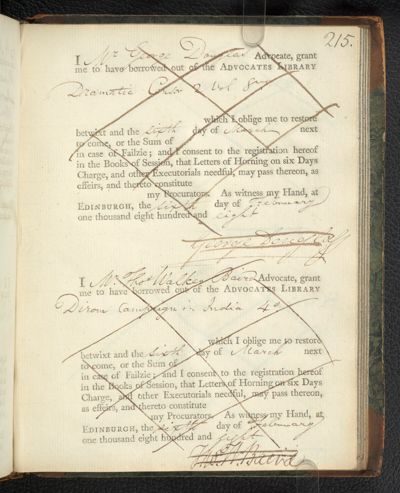 215.
I Mr George Douglas Advocate, grant
me to have borrowed out of the ADVOCATES LIBRARY
Dramatic 2 Vol 8vo
which I oblige me to restore
betwixt and the sixth day of March next
to come, or the Sum of
in case of Failzie; and I consent to the registration hereof
in the Books of Session, that Letters of Horning on six Days
Charge, and other Executorials needful, may pass thereon, as
effeirs, and thereto constitute
my Procurators. As witness my Hand, at
EDINBURGH, the sixth day of February
one thousand eight hundred and eight
George Douglas
I Mr Thos Walker Baird Advocate, grant
me to have borrowed out of the ADVOCATES LIBRARY
Dirom Campaign in India 4o
which I oblige me to restore
betwixt and the sixth day of March next
to come, or the Sum of
in case of Failzie; and I consent to the registration hereof
in the Books of Session, that Letters of Horning on six Days
Charge, and other Executorials needful, may pass thereon,
as effeirs, and thereto constitute
my Procurators. As witness my Hand, at
EDINBURGH, the sixth day of February
one thousand eight hundred and eight
Baird